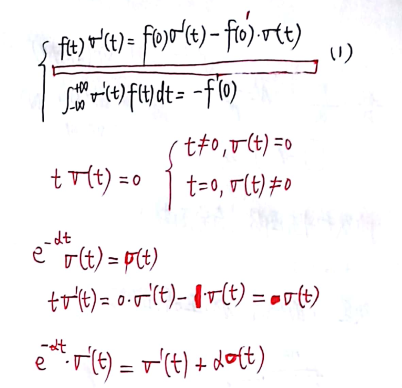 f(t)σ'(t) = f(0)σ'(t) - f'(0)·σ(t) (1)
∫_{-∞}^{+∞} σ'(t) f(t) dt = -f'(0)
tσ(t) = 0 { t≠0, σ(t) = 0
t=0, σ(t) ≠ 0
e^{-αt} σ(t) = σ(t)
tσ'(t) = 0·σ'(t) - 1·σ(t) = -σ(t)
e^{-αt}·σ'(t) = σ'(t) + ασ(t)